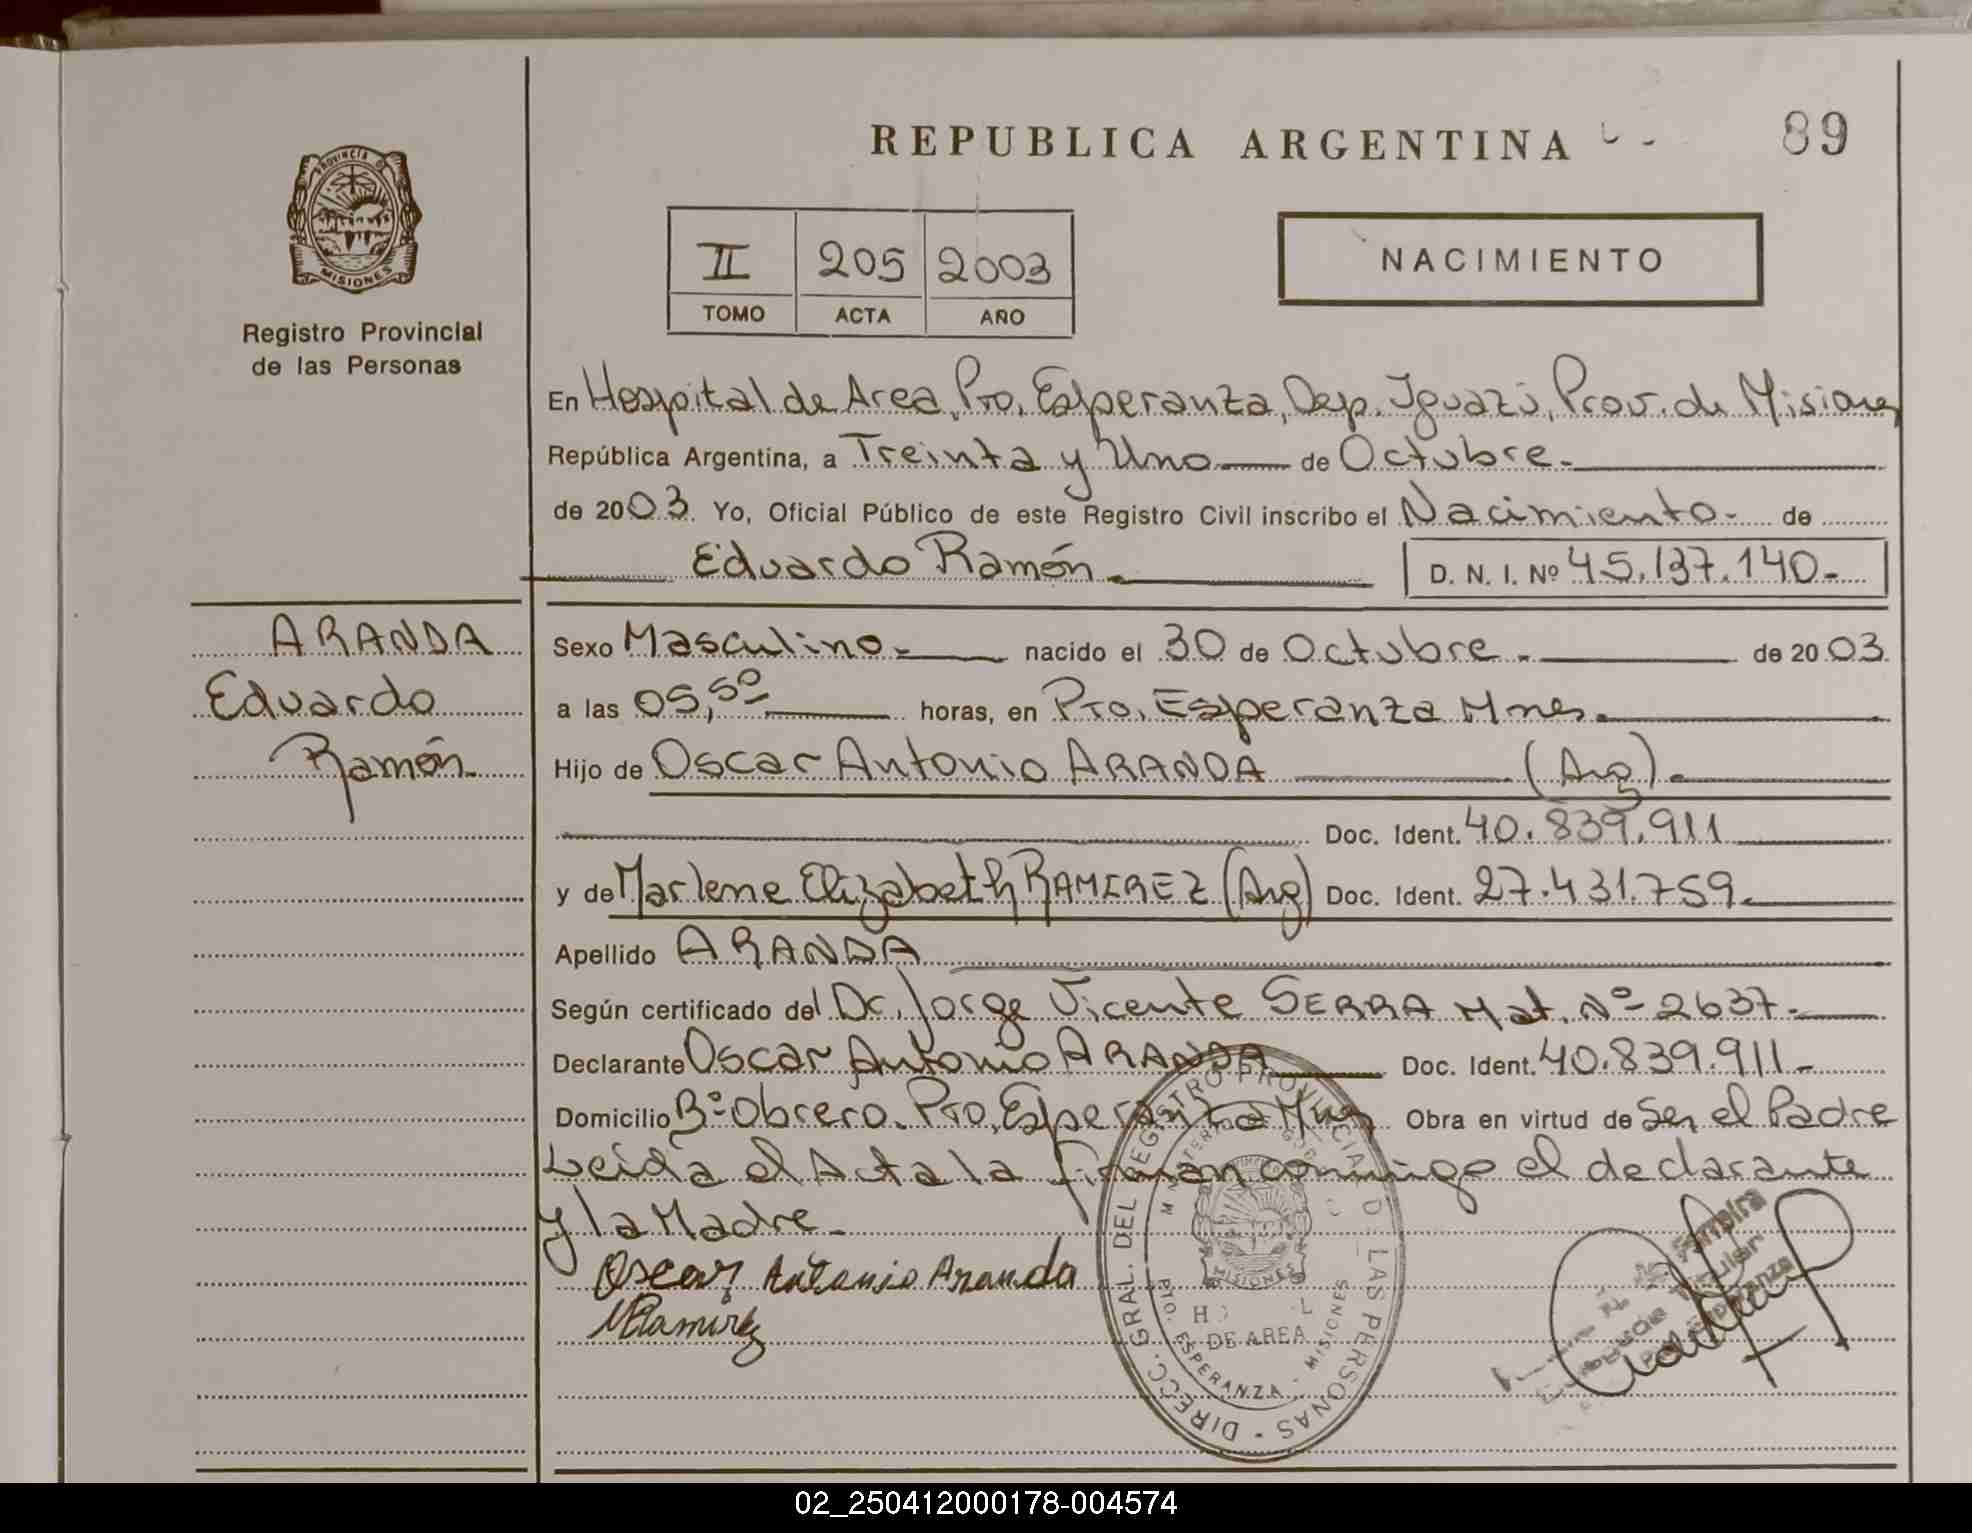 REPUBLICA ARGENTINA
89
PROVINCIA DE
MISIONES
Registro Provincial
de las Personas
II 205 2003
TOMO ACTA AÑO
NACIMIENTO
En Hospital de Area, Pto. Esperanza, Dep. Iguazú, Prov. de Misiones
República Argentina, a Treinta y Uno de Octubre.
de 2003. Yo, Oficial Público de este Registro Civil inscribo el Nacimiento. de
Eduardo Ramón. D. N. I. Nº 45.137.140.
ARANDA
Eduardo
Ramón.
Sexo Masculino. nacido el 30 de Octubre. de 2003
a las 05,50 horas, en Pto. Esperanza Mnes.
Hijo de Oscar Antonio ARANDA (Arg).
Doc. Ident. 40.839.911
y de Marlene Elizabeth RAMIREZ (Arg) Doc. Ident. 27.431.759.
Apellido ARANDA
Según certificado del Dr. Jorge Vicente SERRA Mat. Nº 2637.
Declarante Oscar Antonio ARANDA Doc. Ident. 40.839.911.
Domicilio Bº Obrero. Pto. Esperanza Mnes Obra en virtud de Ser el Padre
Leída el Acta la firman conmigo el declarante
y la Madre.
Oscar Antonio Aranda
MRamirez
DIRECC. GRAL. DEL REGISTRO PROVINCIAL DE LAS PERSONAS
MISIONES
DE AREA
PTO. ESPERANZA - MISIONES
02_250412000178-004574